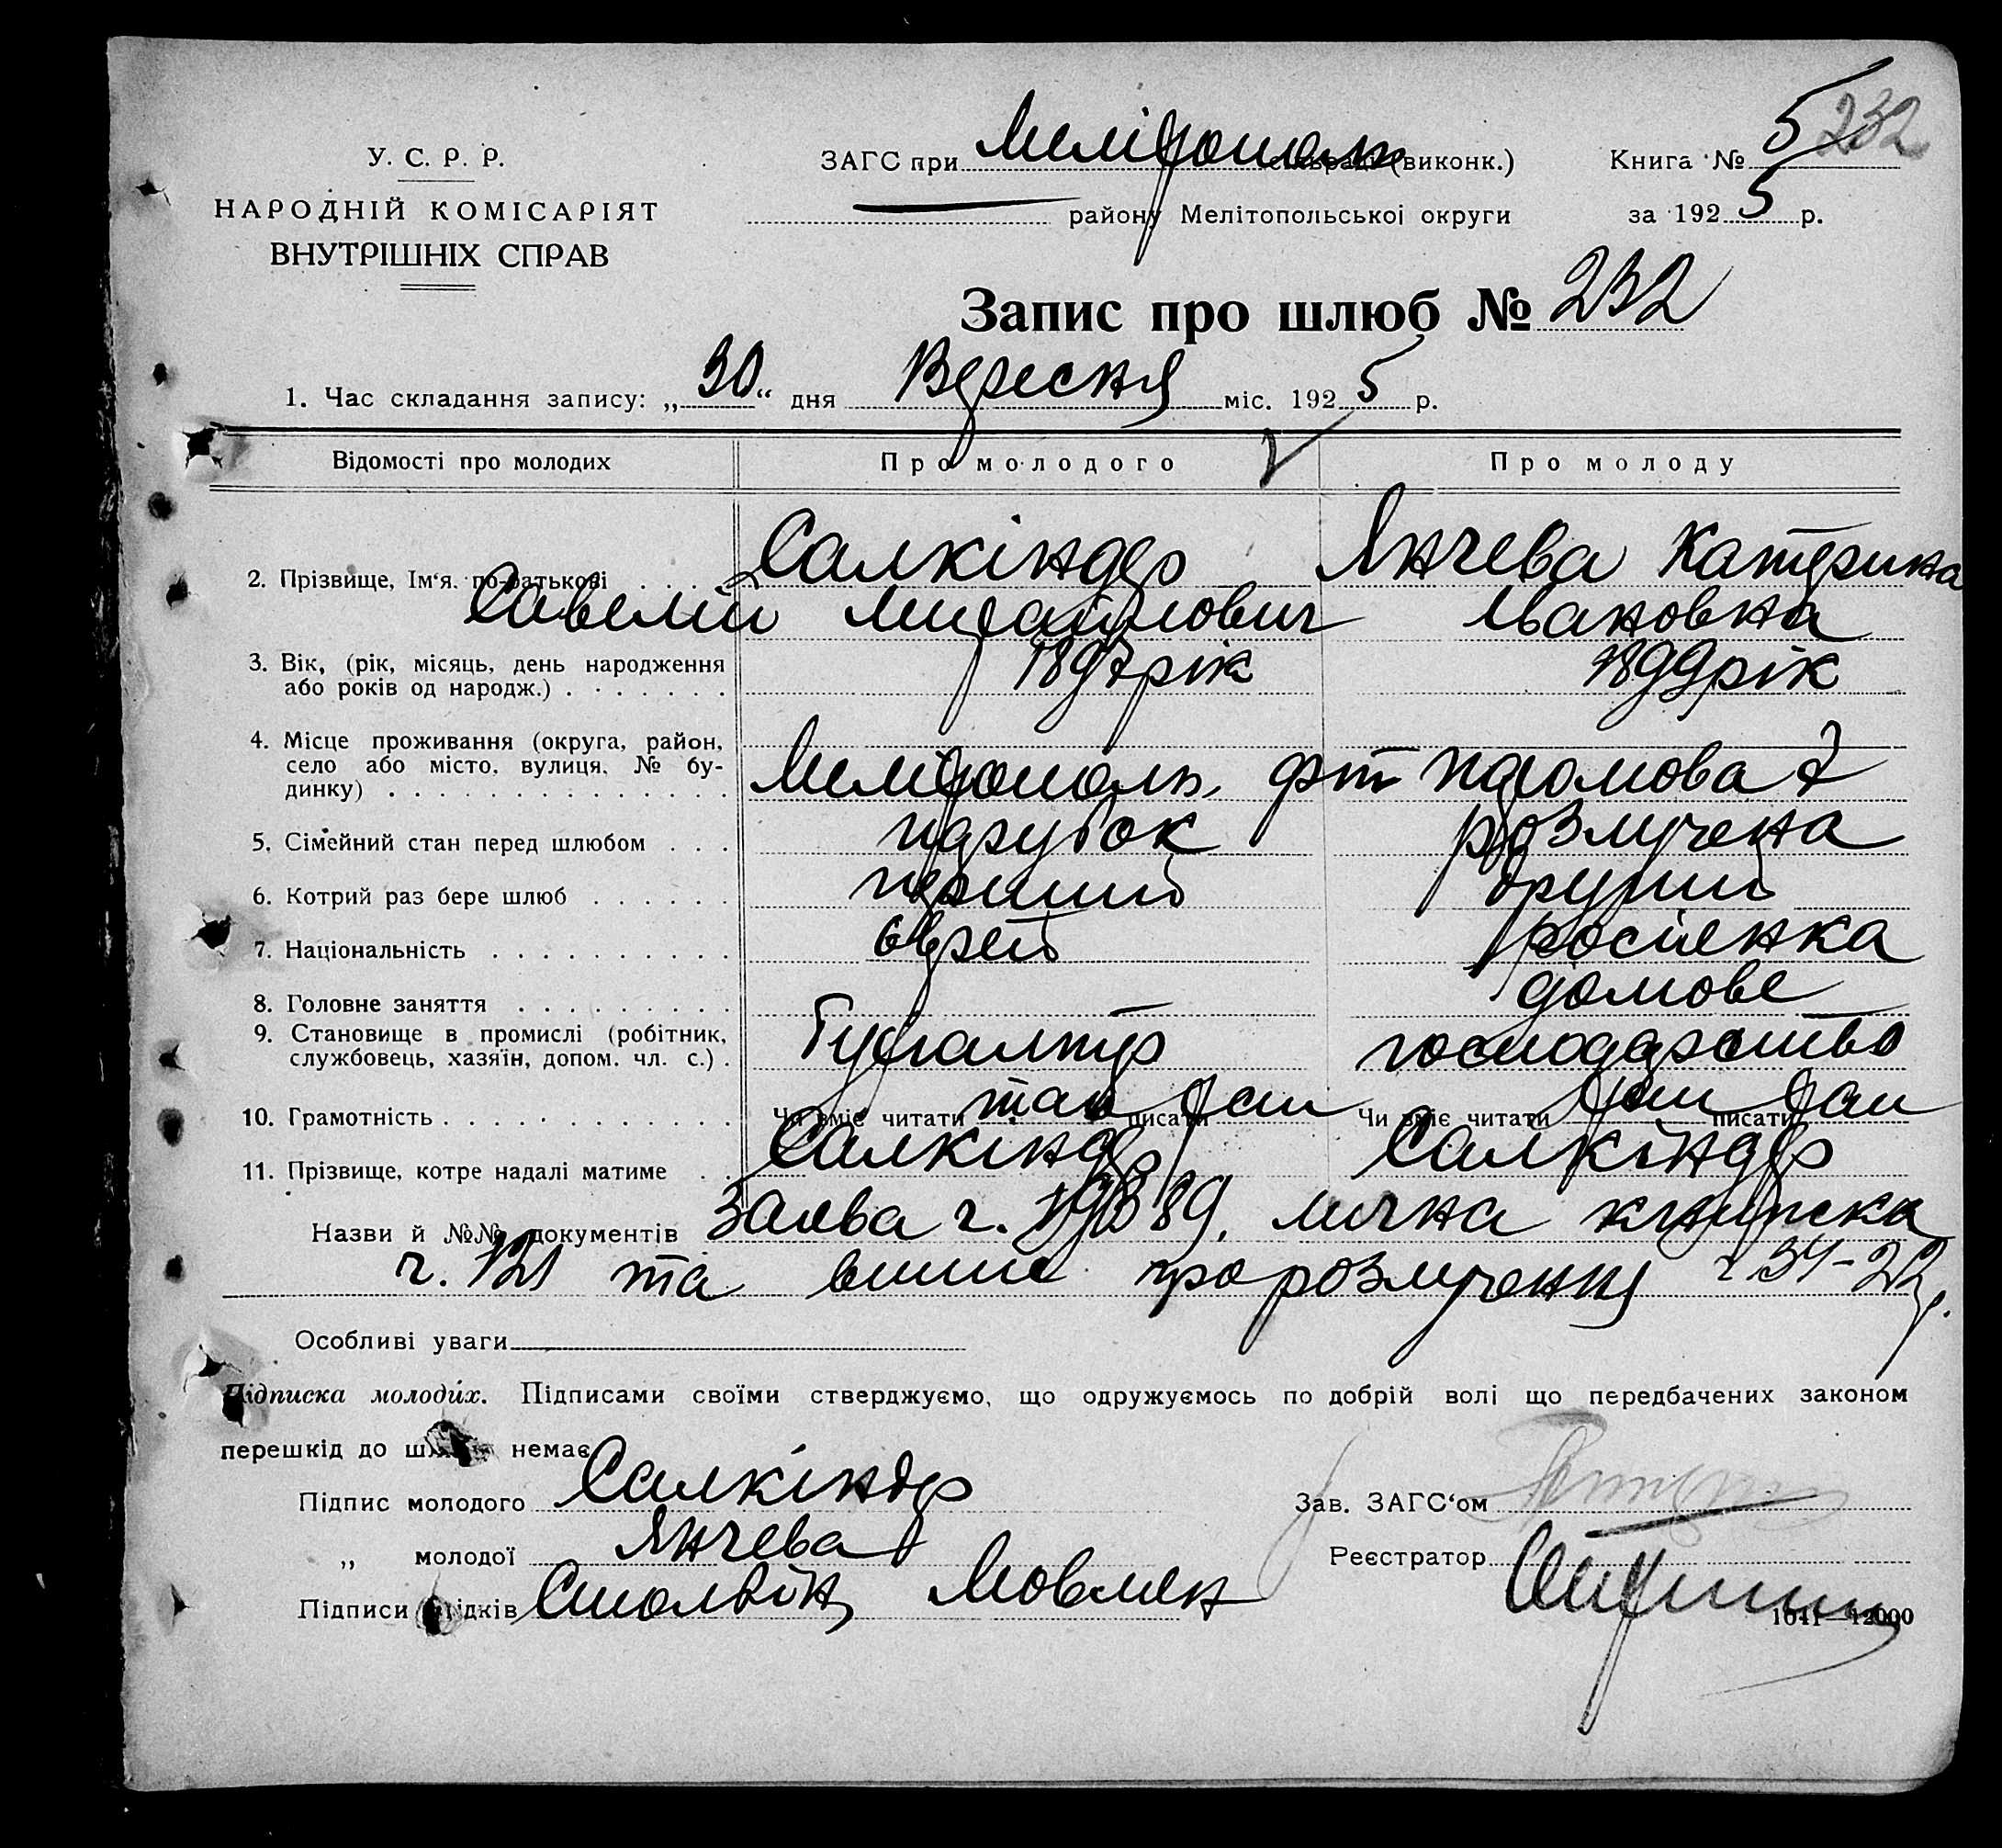 У. С. Р. Р.
НАРОДНІЙ КОМІСАРІЯТ
ВНУТРІШНІХ СПРАВ
ЗАГС при Мелітополь сільраді (виконк.)
району Мелітопольськоі округи
Книга № 5 232
за 1925 р.
Запис про шлюб № 232
1. Час складання запису: „30“ дня Вересня міс. 1925 р.
Відомості про молодих Про молодого Про молоду
2. Прізвище, Ім‘я. по-батькові . . . . Салкіндер Янчева Катерина
Савелій Михайлович Івановна
3. Вік, (рік, місяць, день народження
або років од народж.) . . . . . . . 1897 рік 1899 рік
4. Місце проживання (округа, район,
село або місто, вулиця, № бу-
динку) . . . . . . . . . . . . . . Мелітополь,
5. Сімейний стан перед шлюбом . . . парубок розлучена
6. Котрий раз бере шлюб . . . . . . перший другий
7. Національність . . . . . . . . . . єврей росіянка
8. Головне заняття . . . . . . . . . домове
9. Становище в промислі (робітник,
службовець, хазяїн, допом. чл. с.) . Бухгалтер господарство
10. Грамотність . . . . . . . . . . . . Чи вміє читати так писати так Чи вміє читати так писати так
11. Прізвище, котре надалі матиме . . Салкіндер Салкіндер
Назви й №№ документів Заява ч. лична книжка
ч. 121 та випис про розлучення ч 34-23р.
Особливі уваги
Підписка молодих. Підписами своїми стверджуємо, що одружуємось по добрій волі що передбачених законом
перешкід до шлюбу немає
Підпис молодого Салкіндер
Зав. ЗАГС‘ом
„ молодої Янчева
Реєстратор
Підписи свідків Мовлен
1041—12000